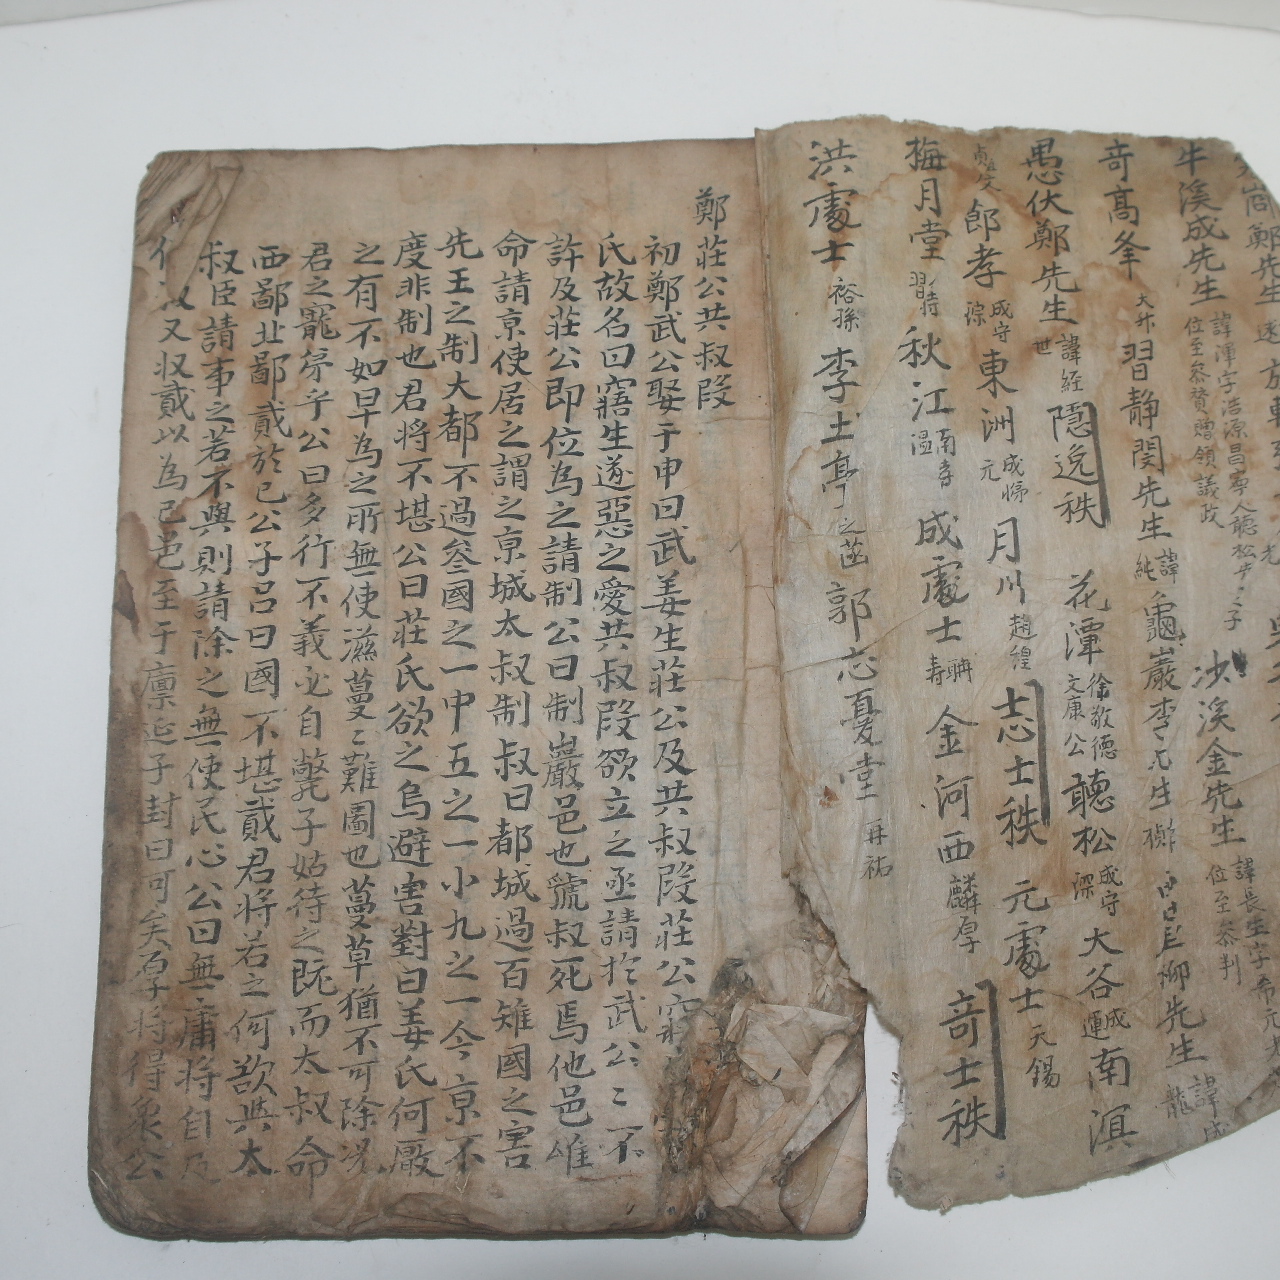 鄭先生
牛溪成先生 諱渾字浩源昌寧人聽松先生之子 位至參贊贈領議政 沙溪金先生 諱長生字希元 位至參判
奇高峯 大升 習靜閔先生 諱純 龜巖李先生 楨 柳先生 諱成龍
愚伏鄭先生 諱經世 隱逸秩 花潭 徐敬德 文康公 聽松 成守琛 大谷 成運 南溟
貞文 郎孝 成守琮 東洲 成悌元 月川 趙穆 志士秩 元處士 天錫
梅月堂 時習 秋江 南孝溫 成處士 聃壽 金河西 麟厚 奇士秩
洪處士 裕孫 李土亭 之菡 郭忘憂堂 再祐
鄭莊公共叔段
初鄭武公娶于申曰武姜生莊公及共叔段莊公寤
氏故名曰寤生遂惡之愛共叔段欲立之亟請於武公〻不
許及莊公即位為之請制公曰制巖邑也虢叔死焉他邑唯
命請京使居之謂之京城太叔制叔曰都城過百雉國之害
先王之制大都不過參國之一中五之一小九之一今京不
度非制也君將不堪公曰莊氏欲之焉避害對曰姜氏何厭
之有不如早為之所無使滋蔓〻難圖也蔓草猶不可除況
君之寵弟乎公曰多行不義必自斃子姑待之既而太叔命
西鄙北鄙貳於己公子呂曰國不堪貳君將若之何欲與太
叔臣請事之若不與則請除之無使民心公曰無庸將自及
叔又収貳以為己邑至于廩延子封曰可矣厚將得衆公